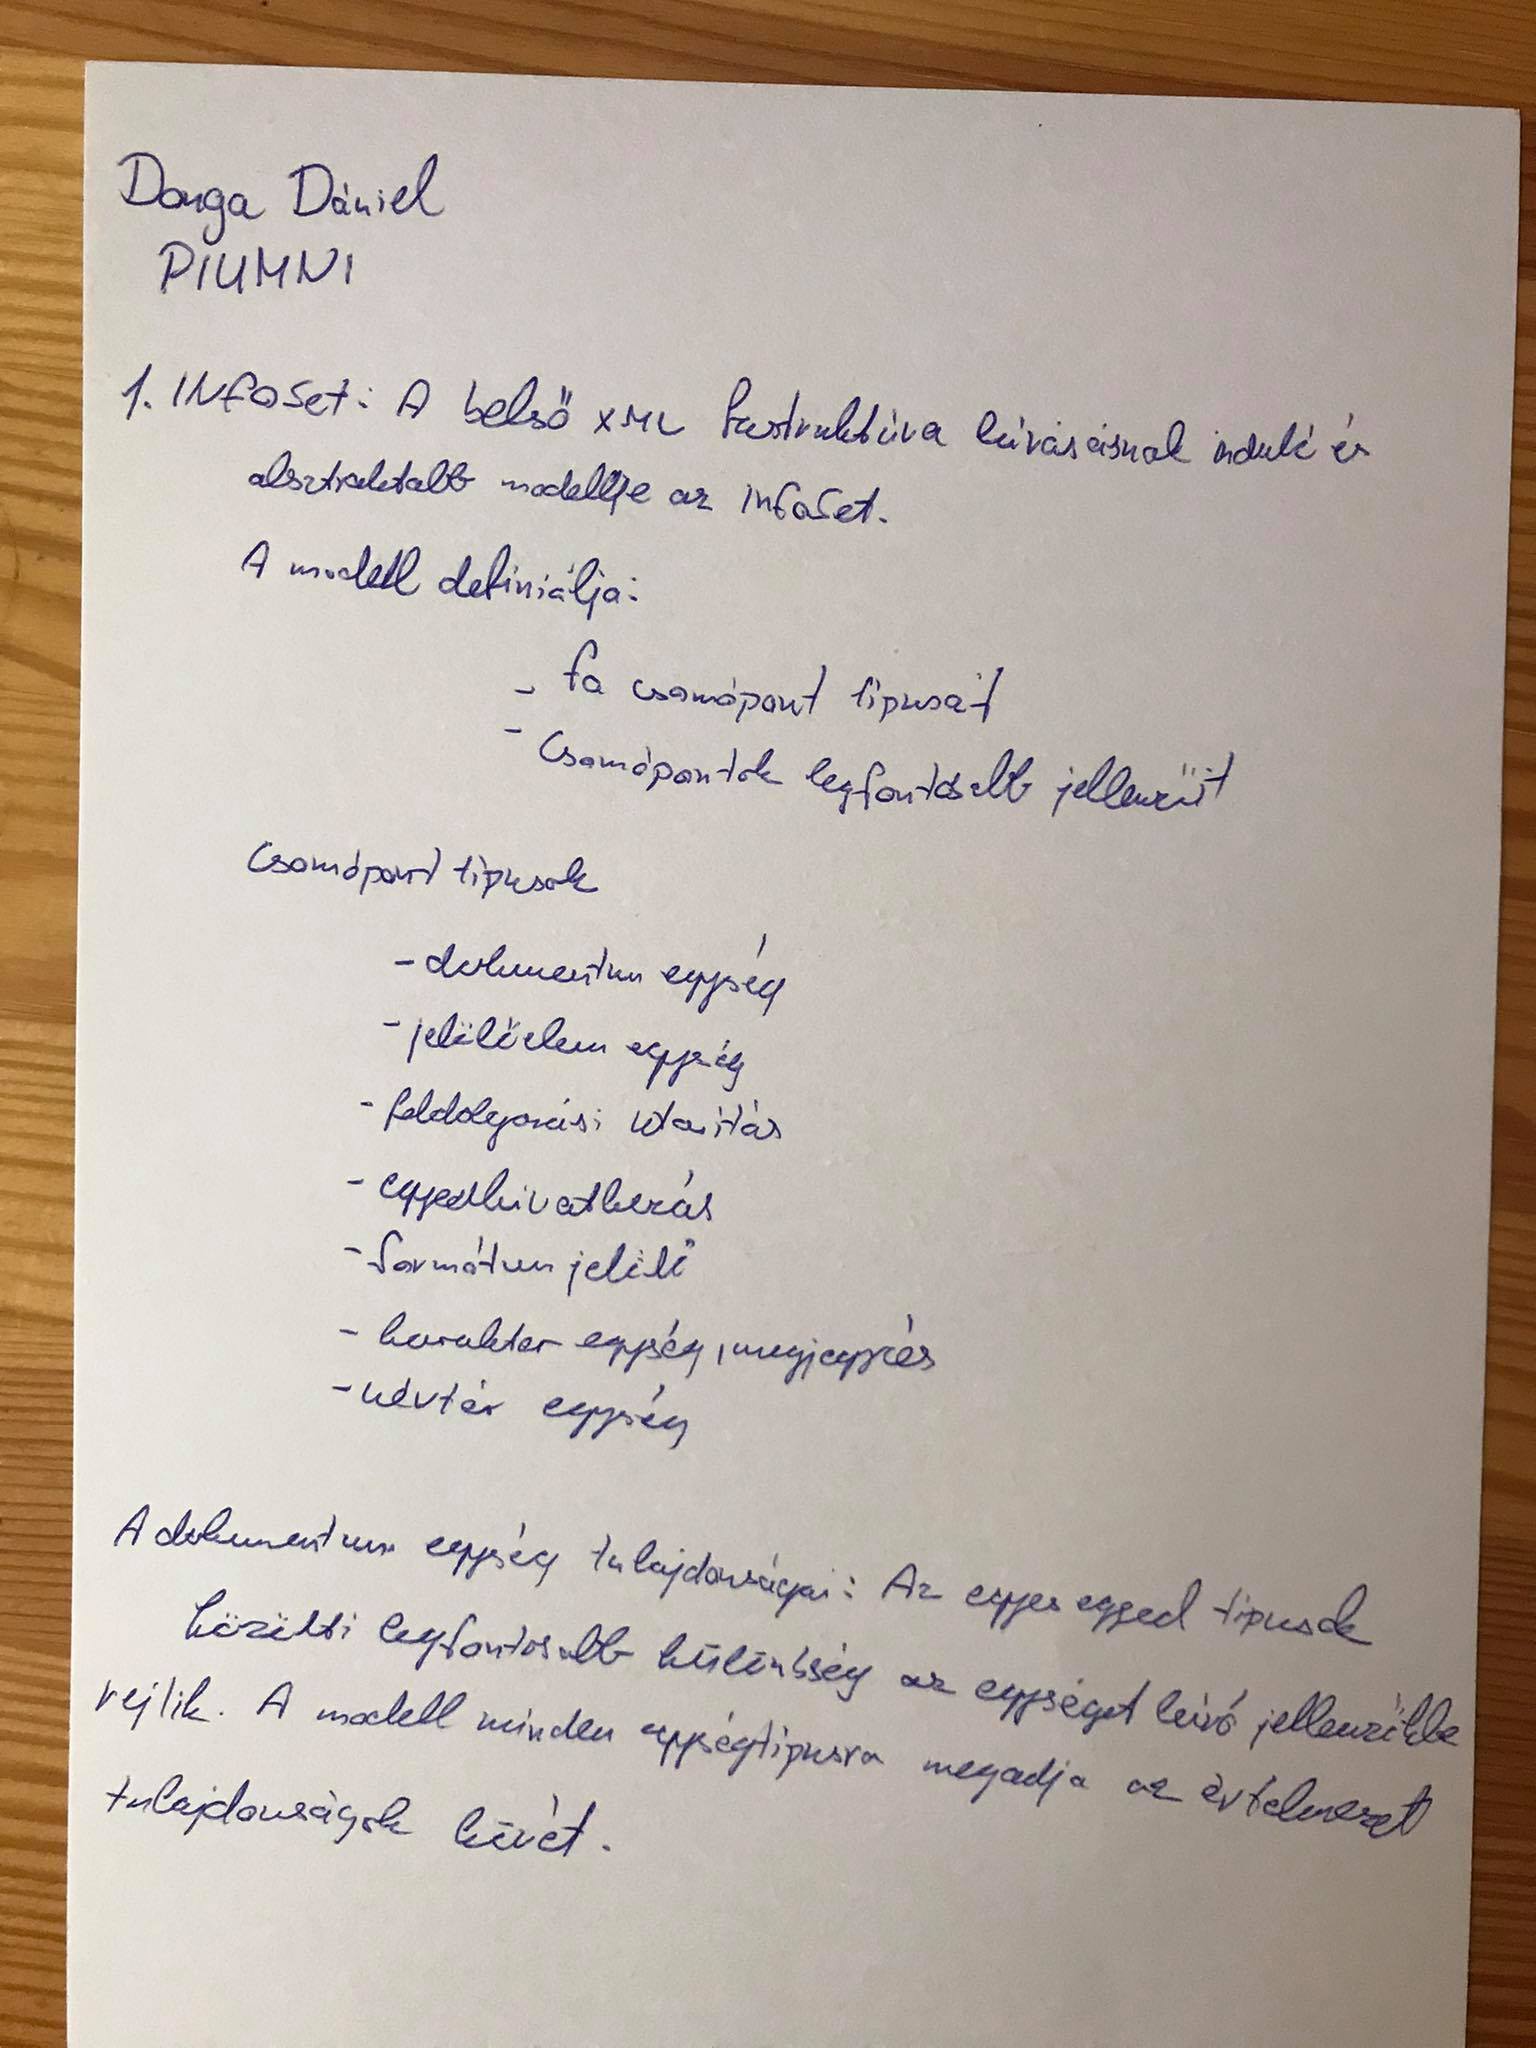 Donga Dániel
PIUMNI
1. INFOSet: A belső XML fastruktúra leírásásnak induló és
absztraktabb modellje az INFOSet.
A modell definiálja:
- fa csomópont típusait
- Csomópontok legfontosabb jellemzőit
Csomópont típusok
- dokumentum egység
- jelölőelem egység
- feldolgozási utasítás
- egyedhivatkozás
- formátum jelölő
- karakter egység, megjegyzés
- névtér egység
A dokumentum egység tulajdonságai: Az egyes egyed típusok
közötti legfontosabb különbség az egységet leíró jellemzőkbe
rejlik. A modell minden egységtípusra megadja az értelmezet
tulajdonságok körét.